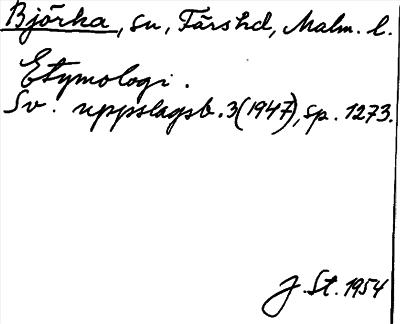 Björka, sn, Färs hd, Malm. l.
Etymologi.
Sv. uppslagsb. 3(1947), sp. 1273.
J. St. 1954